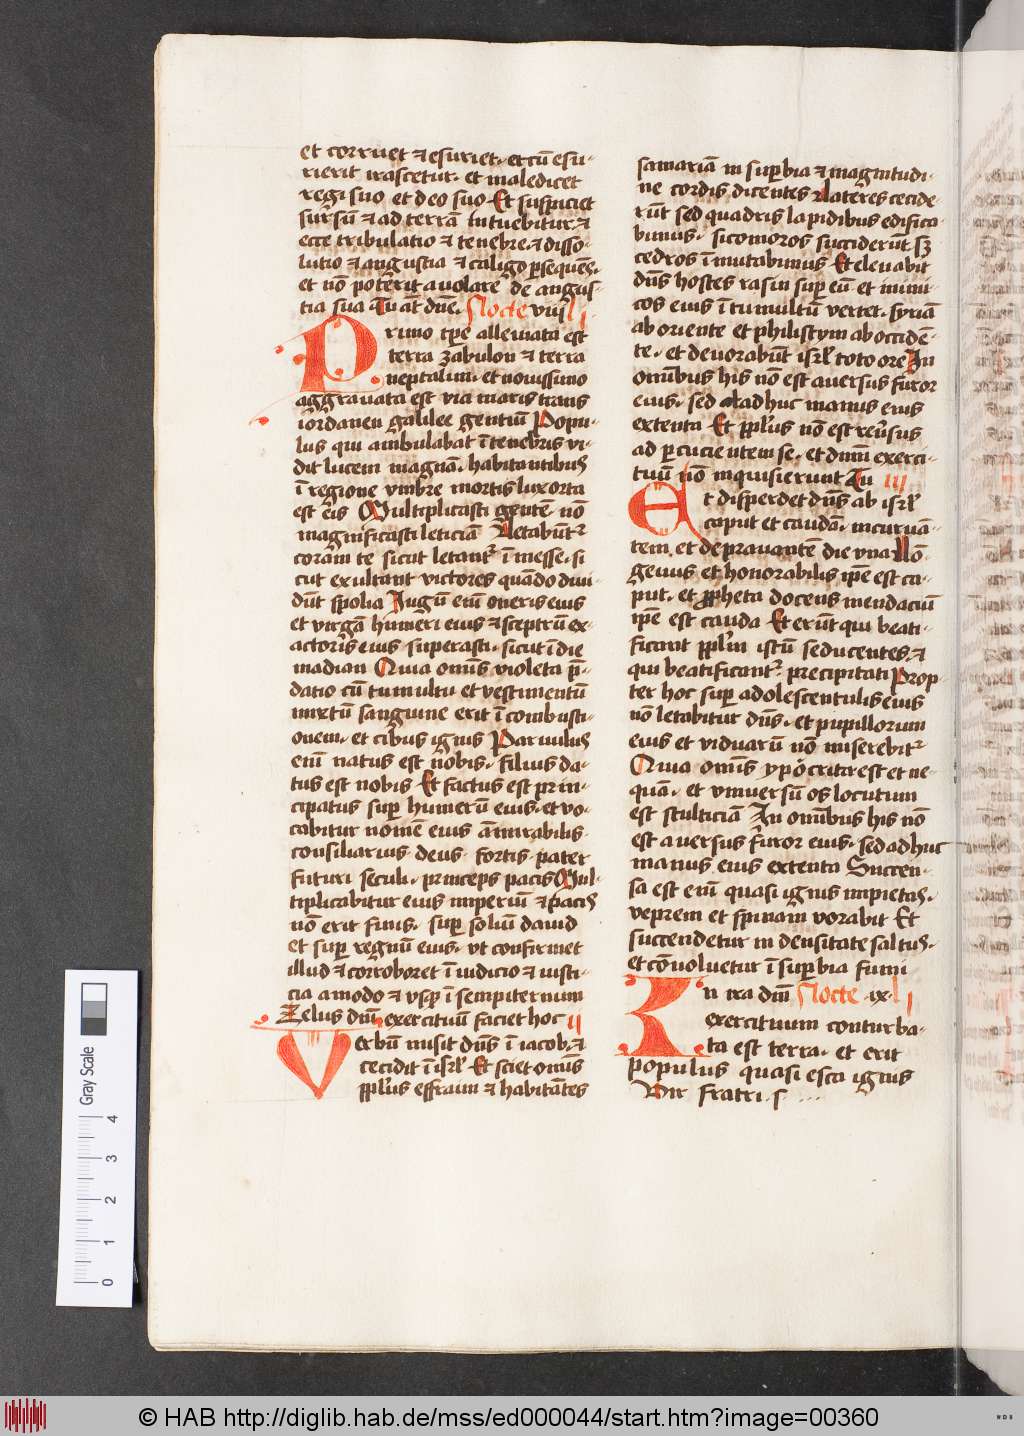 et corruet ⁊ esuriet. et cū esu-
rierit irascetur. et maledicet
regi suo et deo suo. Et suspiciet
sursū ⁊ ad terrā intuebitur. ⁊
ecce tribulatio ⁊ tenebre. ⁊ disso-
lutio ⁊ angustia ⁊ caligo ꝑsequēs.
et nō poterit auolare de angus-
tia sua Tu āt dn̄e. Nocte viii li
Primo tꝑe alleuiata est
terra zabulon ⁊ terra
neptalim. et nouissimo
aggrauata est via maris trans
iordanen galilee gentiū Popu-
lus qui ambulabat ī tenebris vi-
dit lucem magnā. habitantibus
ī regione vmbre mortis lux orta
est eis Multiplicasti gentē. nō
magnificasti leticiā Letabūt᷑
coram te sicut letant᷑ ī messe. si
cut exultant victores quādo diui
dūt spolia Iugū em̄ oneris eius
et virgā humeri eius ⁊ sceptrū ex-
actoris eius superasti. sicut ī die
madian Quia om̄is violeta p̄-
datio cū tumultu et vestimentū
mixtū sanguine erit ī combusti-
onem. et cibus ignis Paruulus
em̄ natus est nobis. filius da-
tus est nobis Et factus est prin-
cipatus suꝑ humerū eius. et vo-
cabitur nomē eius āmirabilis.
consiliarius. deus. fortis. pater
futuri seculi. princeps pacis Mul-
tiplicabitur eius imperiū ⁊ pacis
nō erit finis. suꝑ soliū dauid
et suꝑ regnū eius. vt confirmet
illud ⁊ corroboret ī iudicio ⁊ iusti-
cia amodo ⁊ vsqꝫ ī sempiternum
Zelus dn̄i exercituū faciet hoc ii
Verbū misit dn̄s ī iacob. ⁊
cecidit ī isrl̄ Et sciet om̄is
ppl̄us effraim ⁊ habitātes
samariā in suꝑbia ⁊ magnitudi-
ne cordis dicentes Lateres cecide-
rūt sed quadris lapidibus edifica-
bimus. sicomoros succiderūt. sꝫ
cedros īmutabimus Et eleuabit
dn̄s hostes rasin suꝑ eū et inimi
cos eius ī tumultū vertet. syriā
ab oriente et philistym ab occidē-
te. et deuorabūt isrl̄ toto ore In
omībus his nō est auersus furor
eius. sed adhuc manus eius
extenta Et ppl̄us nō est reu̓sus
ad ꝑcucientem se. et dn̄m exerci-
tuū nō inquisierunt Tu iii
Et disperdet dn̄s ab isrl̄
caput et caudā. incuruā-
tem et deprauantē die vna Lō-
geuus et honorabilis ip̄e est ca-
put. et ꝓpheta docens mendaciū
ip̄e est cauda Et erūt qui beati-
ficant ppl̄m istū seducentes. ⁊
qui beatificant᷑ precipitati Prop-
ter hoc suꝑ adolescentulis eius
nō letabitur dn̄s. et pupillorum
eius et viduarū nō miserebit᷑
Quia om̄is ypocrita est et ne-
quā. et vniuersū os locutum
est stulticiā In omībus his nō
est auersus furor eius. sed adhuc
manus eius extenta Succen-
sa est em̄ quasi ignis impietas.
veprem et spinam vorabit Et
succendetur in densitate saltus.
et cōuoluetur ī suꝑbia fumi
In ira dn̄i Nocte ix. li
exercituum conturba-
ta est terra. et erit
populus quasi esca ignis
Vir fratri. s ...
Gray Scale
0 1 2 3 4
© HAB http://diglib.hab.de/mss/ed000044/start.htm?image=00360